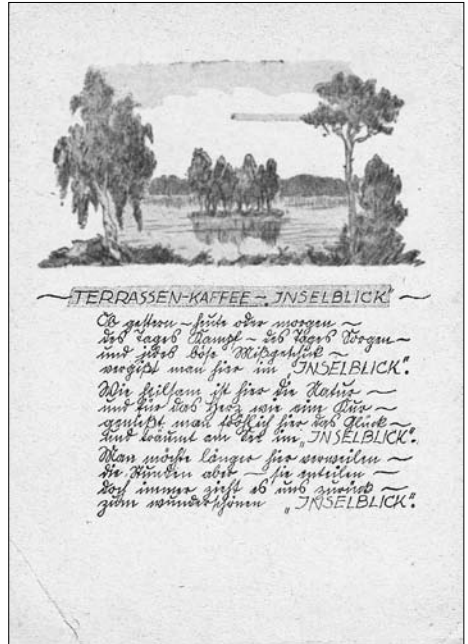 TERRASSEN-KAFFEE ~ „INSELBLICK"
Ob gestern ~ heute oder morgen ~
des Tages Kampf ~ des Tages Sorgen ~
und jedes böse Mißgeschick ~
vergißt man hier im „INSELBLICK".
Wie heilsam ist hier die Natur ~
und für das Herz wie eine Kur ~
genießt man fröhlich hier das Glück ~
und träumt am See im „INSELBLICK".
Man möchte länger hier verweilen ~
die Stunden aber ~ sie enteilen ~
doch immer zieht es uns zurück ~
zum wunderschönen „INSELBLICK".